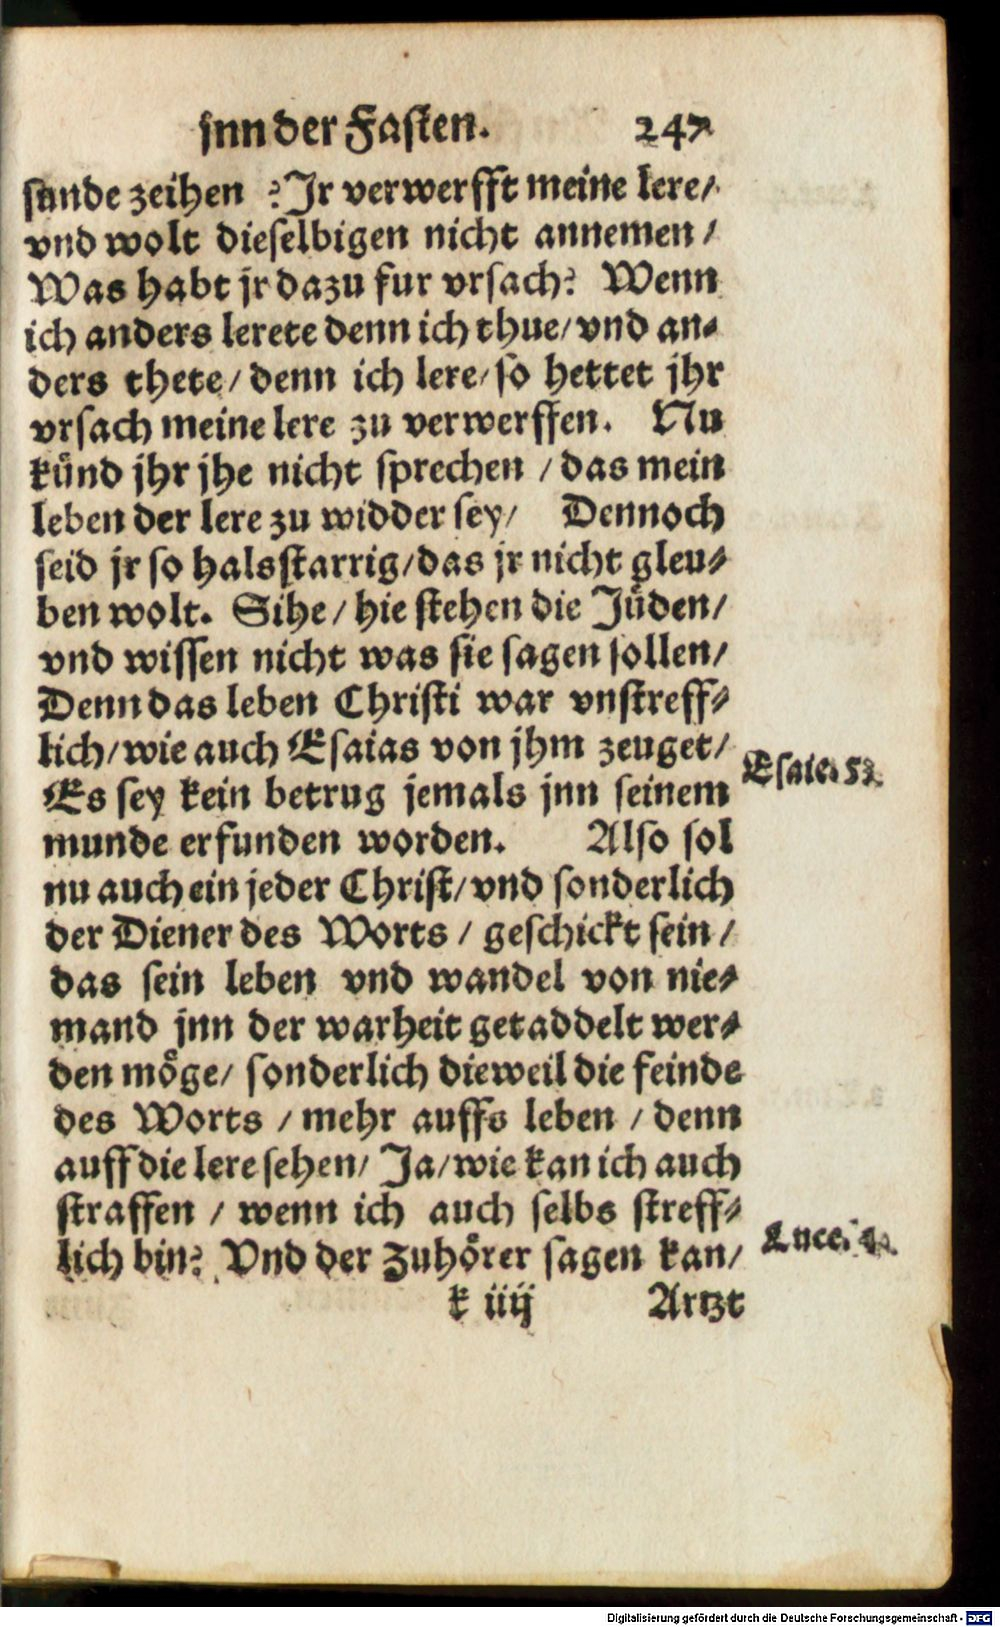 jnn der Fasten. 247
sunde zeihen? Jr verwerfft meine lere/
vnd wolt dieselbigen nicht annemen/
Was habt jr dazu fur vrsach? Wenn
ich anders lerete denn ich thue/ vnd an-
ders thete/ denn ich lere/ so hettet jhr
vrsach meine lere zu verwerffen. Nu
künd jhr jhe nicht sprechen/ das mein
leben der lere zu widder sey/ Dennoch
seid jr so halsstarrig/ das jr nicht gleu-
ben wolt. Sihe/ hie stehen die Jüden/
vnd wissen nicht was sie sagen sollen/
Denn das leben Christi war vnstreff-
lich/ wie auch Esaias von jhm zeuget/ Esaie. 53.
Es sey kein betrug jemals jnn seinem
munde erfunden worden. Also sol
nu auch ein jeder Christ/ vnd sonderlich
der Diener des Worts/ geschickt sein/
das sein leben vnd wandel von nie-
mand jnn der warheit getaddelt wer-
den möge/ sonderlich dieweil die feinde
des Worts/ mehr auffs leben/ denn
auff die lere sehen/ Ja/ wie kan ich auch
straffen/ wenn ich auch selbs streff-
lich bin? Vnd der Zuhörer sagen kan/ Luce. 4.
k iiij Artzt
Digitalisierung gefördert durch die Deutsche Forschungsgemeinschaft - DFG